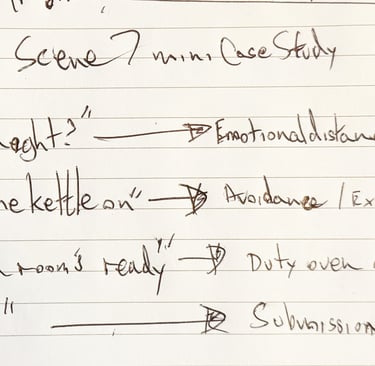 Scene 7 mini Case Study
eght?" → Emotional distan
e kettle on" → Avoidance / Ex
room's ready" → Duty over
" → Submission